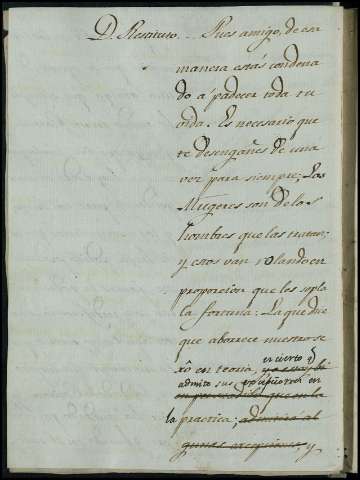 D. Restituto. - Pues amigo, de esa
manera estás condena
do á padecer toda tu
vida. Es necesario que
te desengañes de una
vez para siempre; Las
Mugeres son de los
hombres que las tratan;
y estos van volando en
proporcion que les sopla
la fortuna; La que dice
que aborrece nuestro se
xô en teoria, es cierto q̃
admite sus en
la practica; admitirá al
gunas excepciones, y